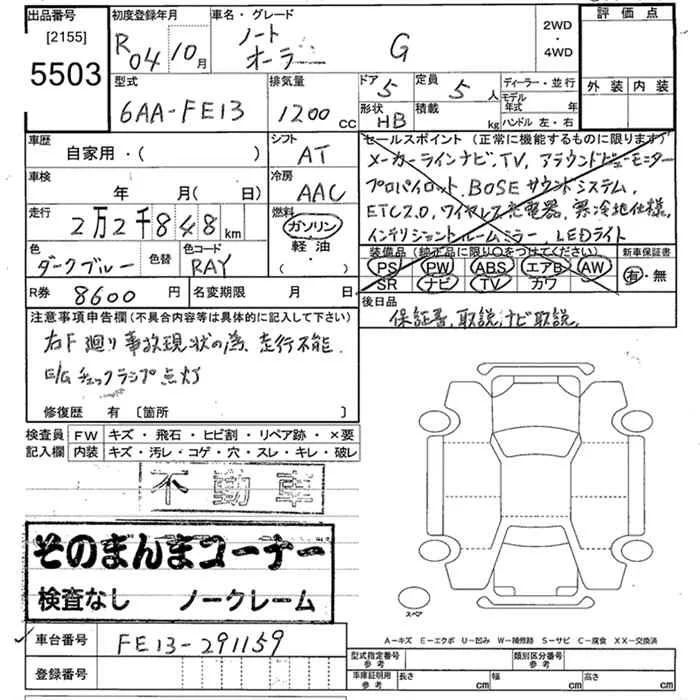 出品番号 初度登録年月 車名・グレード 2WD・4WD 評価点
[2155]
5503
R04 10月
ノート オーラ G
外装 内装
型式 排気量 ドア 定員 ディーラー・並行
6AA-FE13 1200cc 5 5人
モデル年式 年
形状 積載
HB kg
ハンドル 左・右
車歴 シフト セールスポイント (正常に機能するものに限ります)
自家用・( ) AT
メーカーラインナビ,TV,アラウンドビューモニター
車検 冷房
年 月( 日) AAC
プロパイロット,BOSEサウンドシステム,
走行 燃料
2万2千848km ガソリン
軽油・( ・ )
ETC2.0,ワイヤレス充電器,寒冷地仕様,
インテリジェントルームミラー LEDライト
色 色替 色コード
ダークブルー RAY
装備品(純正品に限り○をつけてください) 新車保証書
PS PW ABS エアB AW 有・無
SR ナビ TV カワ
R券 8600円 名変期限 月 日
後日品
保証書,取説,ナビ取説,
注意事項申告欄(不具合内容等は具体的に記入して下さい)
右F廻り事故現状の為、走行不能.
E/Gチェックランプ点灯
修復歴 有 [箇所 ]
検査員 FW キズ・飛石・ヒビ割・リペア跡・×要
記入欄 内装 キズ・汚レ・コゲ・穴・スレ・キレ・破レ
不動車
そのまんまコーナー
検査なし ノークレーム
スペア
A-キズ E-エクボ U-凹み W-補修跡 S-サビ C-腐食 XX-交換済
車台番号 FE13-291159
登録番号
型式指定番号 参考 類別区分番号 参考
車庫証明用 参考 長さ cm 幅 cm 高さ cm